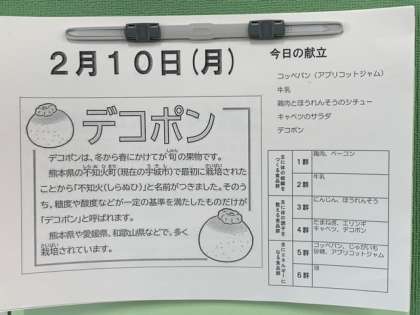 2月10日(月)
デコポン
デコポンは、冬から春にかけてが旬の果物です。
熊本県の不知火町(現在の宇城市)で最初に栽培された
ことから「不知火(しらぬひ)」と名前がつきました。そのう
ち、糖度や酸度などが一定の基準を満たしたものだけが
「デコポン」と呼ばれます。
熊本県や愛媛県、和歌山県などで、多く
栽培されています。
今日の献立
コッペパン(アプリコットジャム)
牛乳
鶏肉とほうれんそうのシチュー
キャベツのサラダ
デコポン
主に体の組織を
つくる食品群
1群
鶏肉、ベーコン
2群
牛乳
主に体の調子を
整える食品群
3群
にんじん、ほうれんそう
4群
たまねぎ、エリンギ
キャベツ、デコポン
主にエネルギーに
なる食品群
5群
コッペパン、じゃがいも
砂糖、アプリコットジャム
6群
油